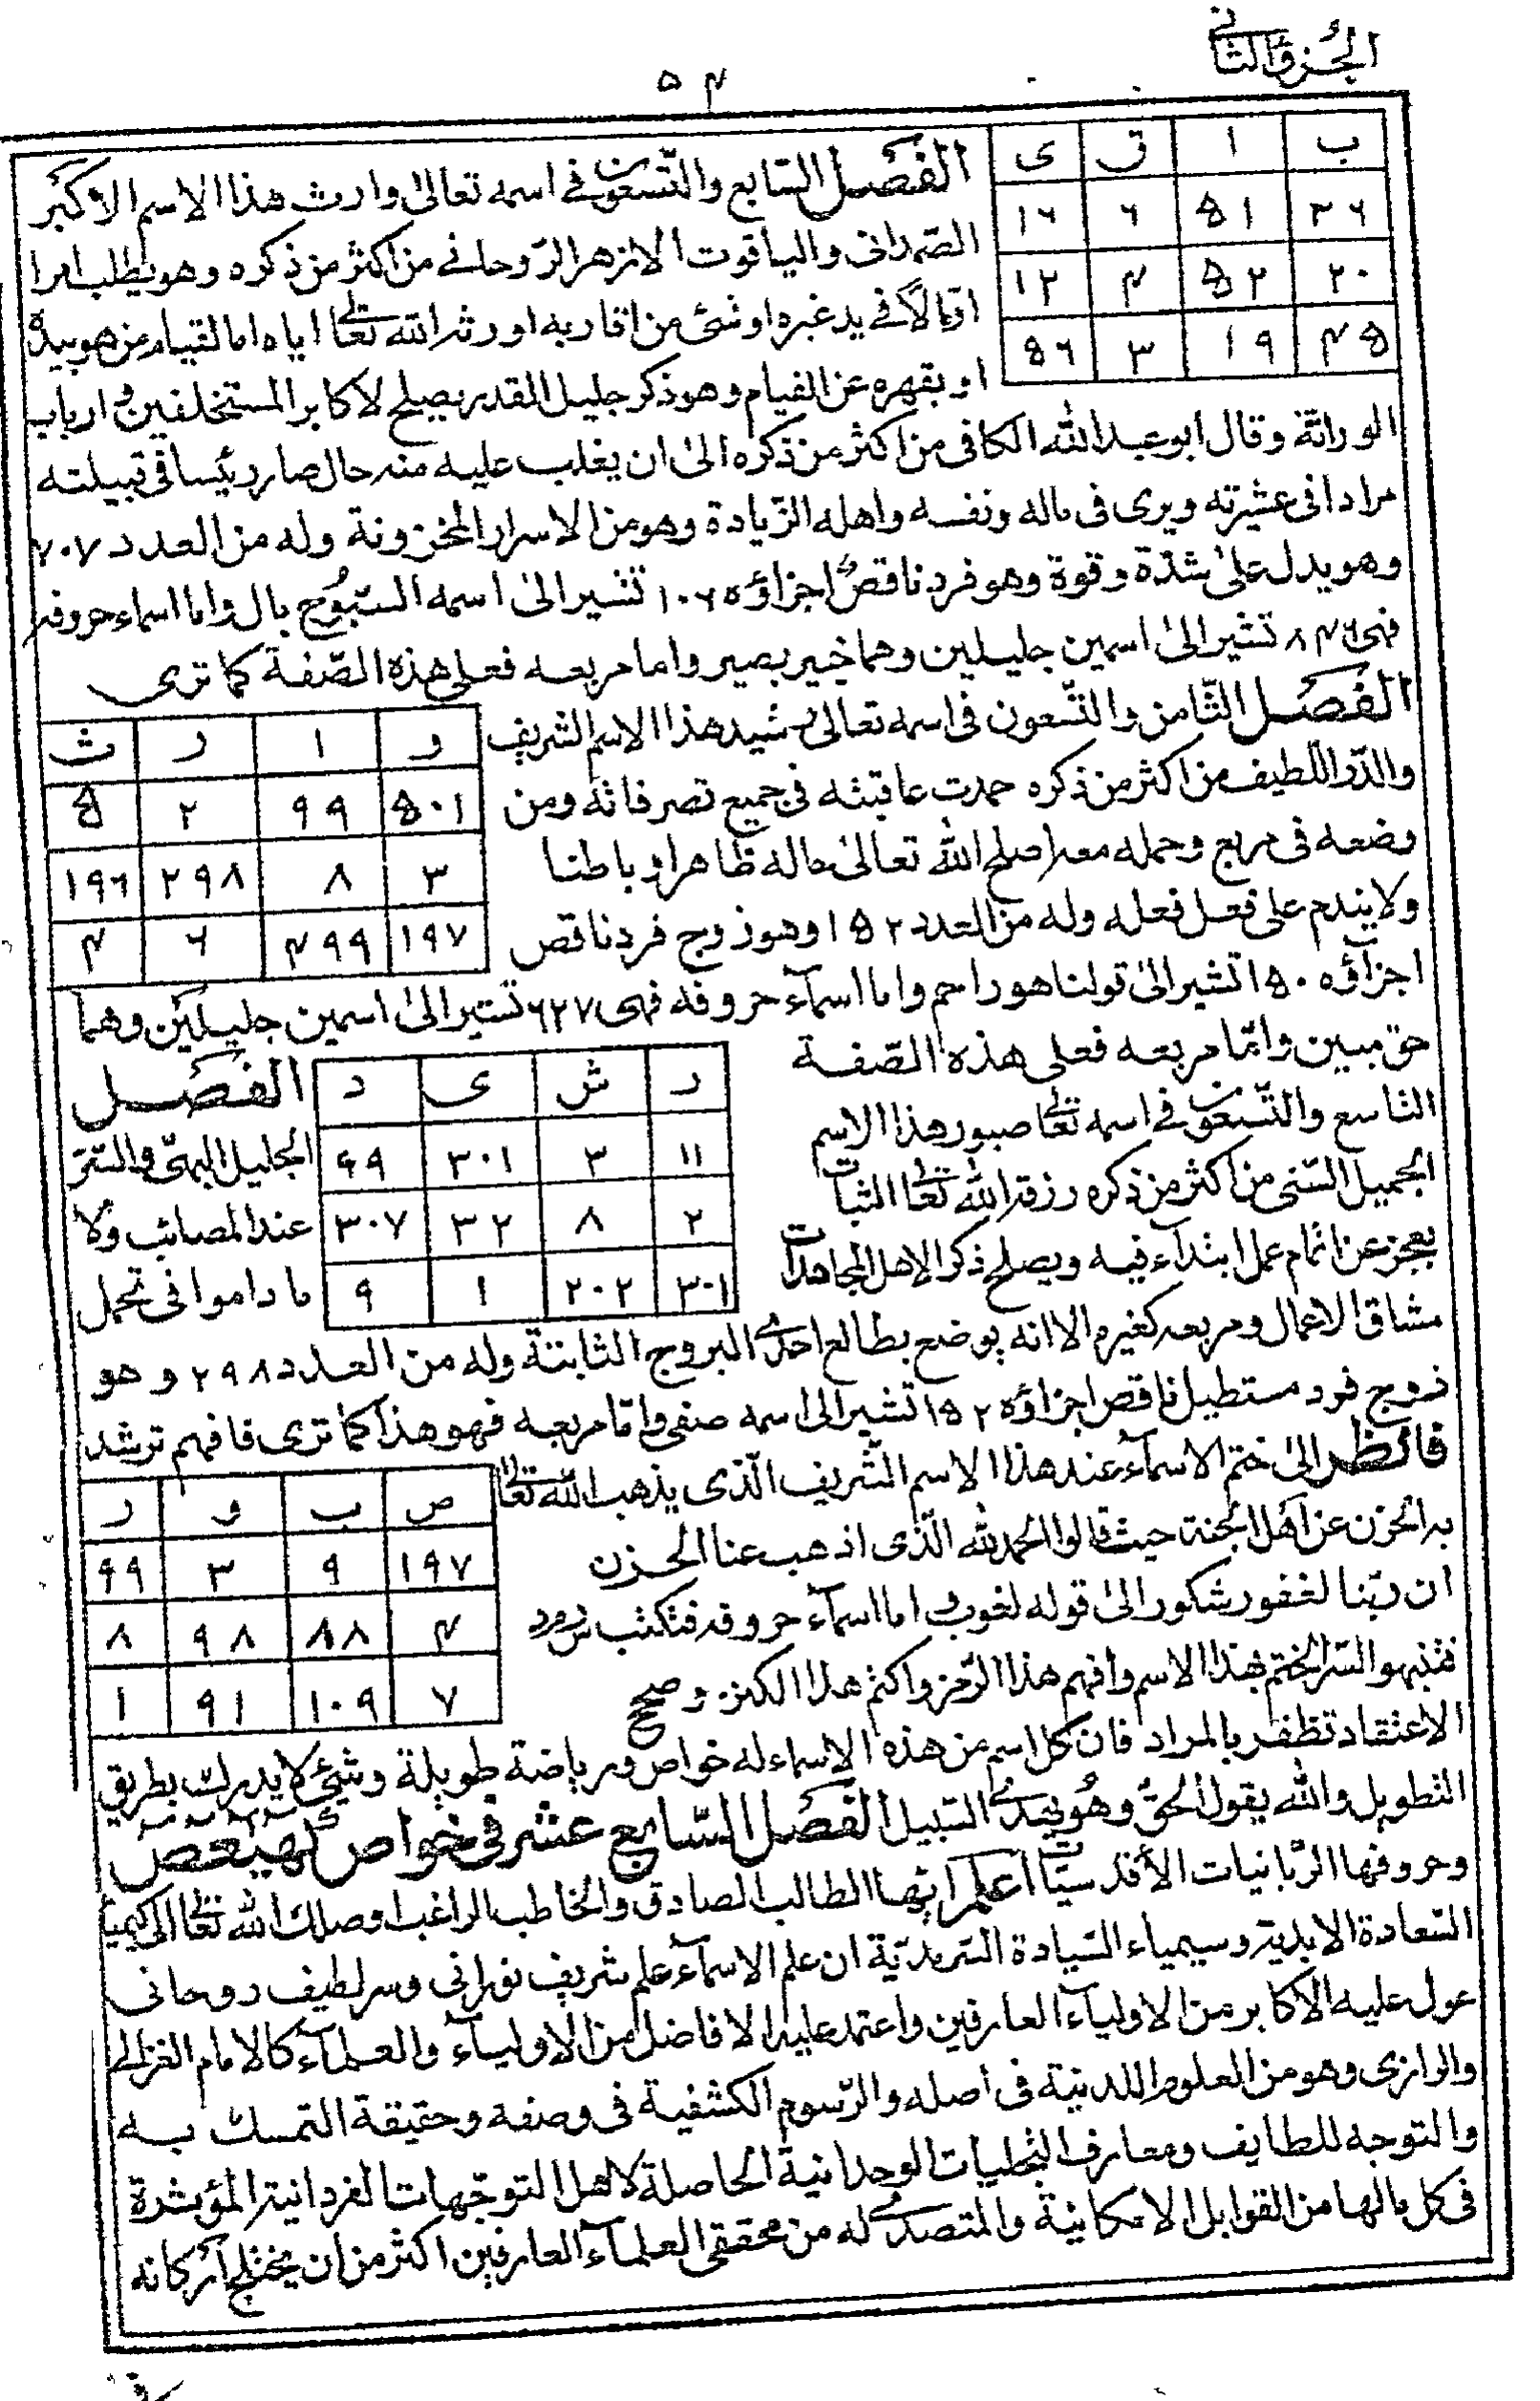 الجزؤ الثاني
٥٤
ب ا ق ى
٣٦ ٥١ ٦ ١٦
٢٠ ٥٢ ٤ ١٢
٤٥ ١٩ ٣ ٥٦
الفصل السابع والتسعون في اسمه تعالى وارث هذا الاسم الاكبر
الصمدانى والياقوت الازهر الروحانى من اكثر من ذكره وهو يطلب امرا
او مالا فى يد غيره او شئ من اقاربه اورثه الله تعالى اياه اما لقيام من هو بيده
او بقهره عن القيام وهو ذكر جليل القدر يصلح لاكابر المستخلفين وارباب
الوراثة وقال ابو عبد الله الكافى من اكثر من ذكره الى ان يغلب عليه منه حال صار رئيسا فى قبيلته
مرادا فى عشيرته ويرى فى ماله ونفسه واهله الزيادة وهو من الاسرار المخزونة وله من العدد ٧٠٧
وهو يدل على شدة وقوة وهو فرد ناقص اجزاؤه ١٠٦ تشير الى اسمه السبوح بال واما اسماء حروفه
فهى ٨٤٦ تشير الى اسمين جليلين وهما خبير بصير واما مربعه فعلى هذه الصفة كما ترى
و ا ر ث
٥٠١ ٩٩ ٢ ٥
٣ ٨ ٢٩٨ ١٩٦
١٩٧ ٤٩٩ ٦ ٤
الفصل الثامن والتسعون فى اسمه تعالى رشيد هذا الاسم الشريف
والدر اللطيف من اكثر من ذكره حمدت عاقبته فى جميع تصرفاته ومن
وضعه فى مربع وحمله معه اصلح الله تعالى حاله ظاهرا وباطنا
ولا يندم على فعل فعله وله من العدد ١٥٢ وهو زوج فرد ناقص
اجزاؤه ١٥٠ تشير الى قولنا هو راحم واما اسماء حروفه فهى ٦٢٧ تشير الى اسمين جليلين وهما
حق مبين واما مربعه فعلى هذه الصفة
ر ش ى د
١١ ٣ ٣٠١ ٩٩
٢ ٨ ٣٢ ٣٠٧
٣٠١ ٢٠٢ ١ ٩
الفصل
التاسع والتسعون فى اسمه تعالى صبور هذا الاسم الجليل البهى والسر
الجميل السنى من اكثر من ذكره رزقه الله تعالى الثبات عند المصائب ولا
يعجز عن اتمام عمل ابتداء فيه ويصلح ذكرا لاهل المجاهدات ما داموا فى تحمل
مشاق الاعمال ومربعه كغيره الا انه يوضع بطالع احدى البروج الثابتة وله من العدد ٢٩٨ وهو
زوج فرد مستطيل ناقص اجزاؤه ١٥٢ تشير الى اسمه صفى واما مربعه فهو هذا كما ترى فافهم ترشد
فانظر الى ختم الاسماء عند هذا الاسم الشريف الذى يذهب الله تعالى
ص ب و ر
١٩٧ ٩ ٣ ٩٩
٤ ٨٨ ٩٨ ٨
٧ ١٠٩ ٩١ ١
به الحزن عن اهل الجنة حيث قالوا الحمد لله الذى اذهب عنا الحزن
ان ربنا لغفور شكور الى قوله لغوب واما اسماء حروفه فتكتب
فتنبهوا لسر الختم بهذا الاسم وافهم هذا الرمز واكتم هذا الكنز وصحح
الاعتقاد تظفر بالمراد فان كل اسم من هذه الاسماء له خواص ورياضة طويلة وشئ لا يدرك بطريق
التطويل والله يقول الحق وهو يهدى السبيل الفصل السابع عشر فى خواص كهيعص
وحروفها الربانيات الأقدسيات اعلم ايها الطالب الصادق والخاطب الراغب اوصلك الله تعالى الى كيمياء
السعادة الابدية وسيمياء السيادة السرمدية ان علم الاسماء علم شريف نورانى وسر لطيف روحانى
عول عليه الاكابر من الاولياء العارفين واعتمد عليه الافاضل من الاولياء والعلماء كالامام الغزالى
والرازى وهو من العلوم اللدنية فى اصله والرسوم الكشفية فى وصفه وحقيقة التمسك به
والتوجه للطايف ومعارف التجليات الوحدانية الحاصلة لاهل التوجهات الفردانية المؤثرة
فى كل مالها من القوابل الامكانية والمتصدى له من محققى العلماء العارفين اكثر من ان يختلج اركانه